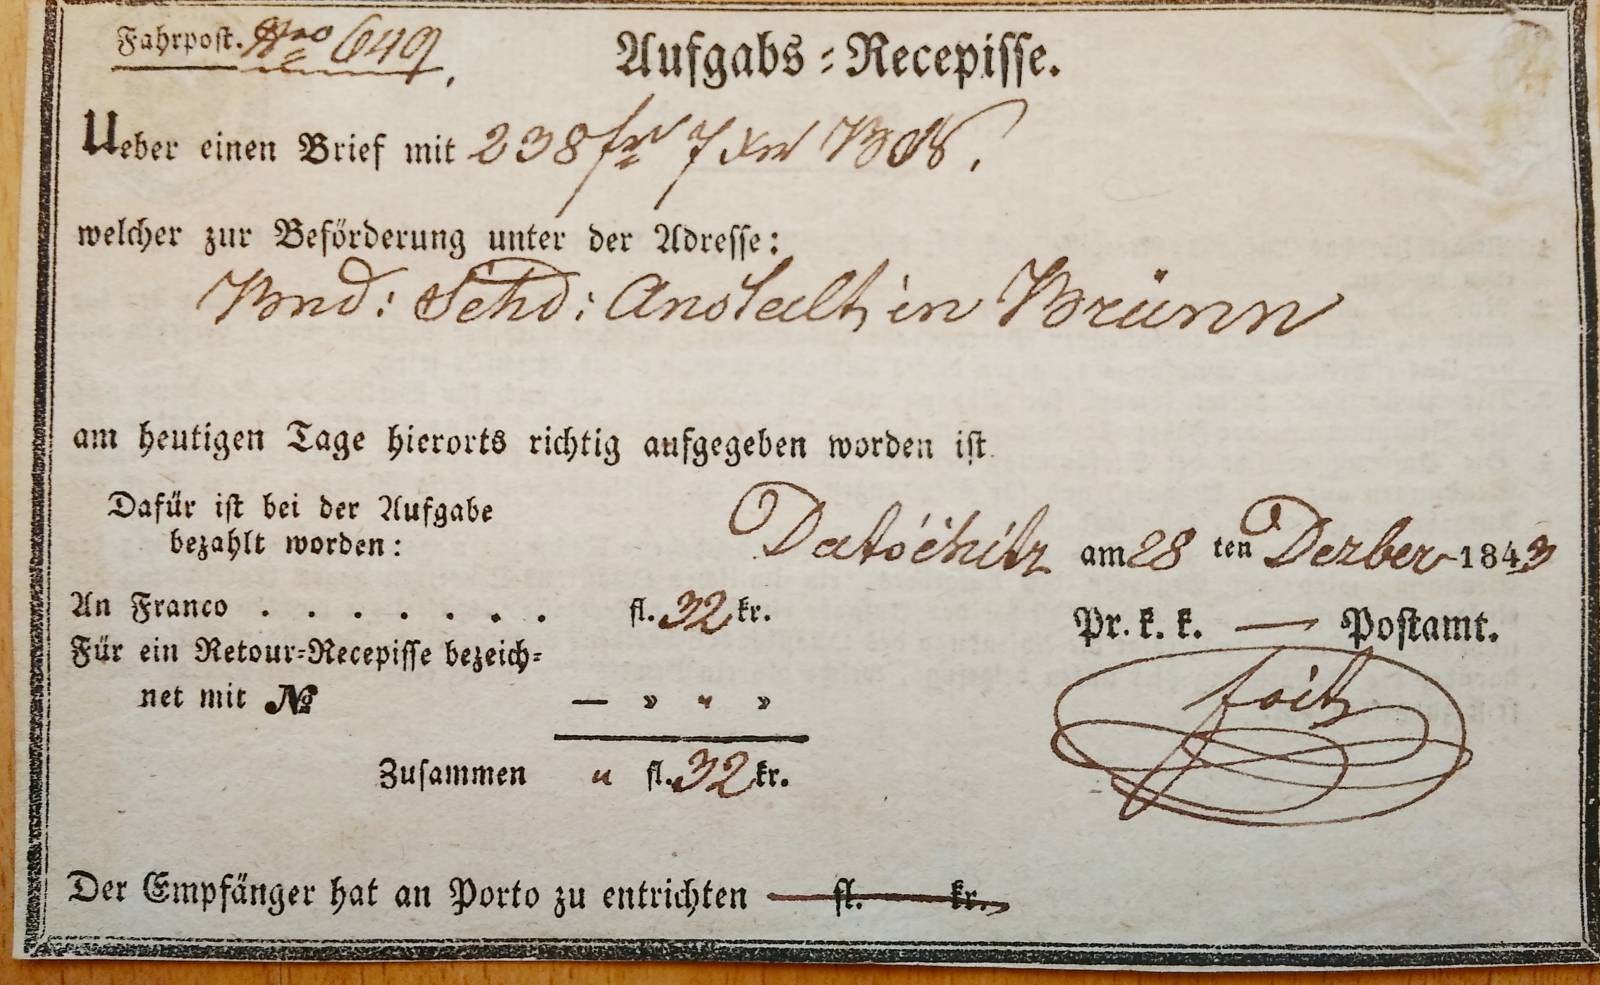 Fahrpost. Nro 649.
Aufgabs-Recepisse.
Ueber einen Brief mit 238 fr 7 xr
welcher zur Beförderung unter der Adresse:
Brnd: Schd: Anstalt, in Brünn
am heutigen Tage hierorts richtig aufgegeben worden ist.
Dafür ist bei der Aufgabe
bezahlt worden:
Datschitz am 28 ten Dezber 1843
An Franco . . . . . . . fl. 32 kr.
Pr. k. k. — Postamt.
Für ein Retour-Recepisse bezeich-
net mit № — » " »
Zusammen " fl. 32 kr.
Der Empfänger hat an Porto zu entrichten — fl. — kr.